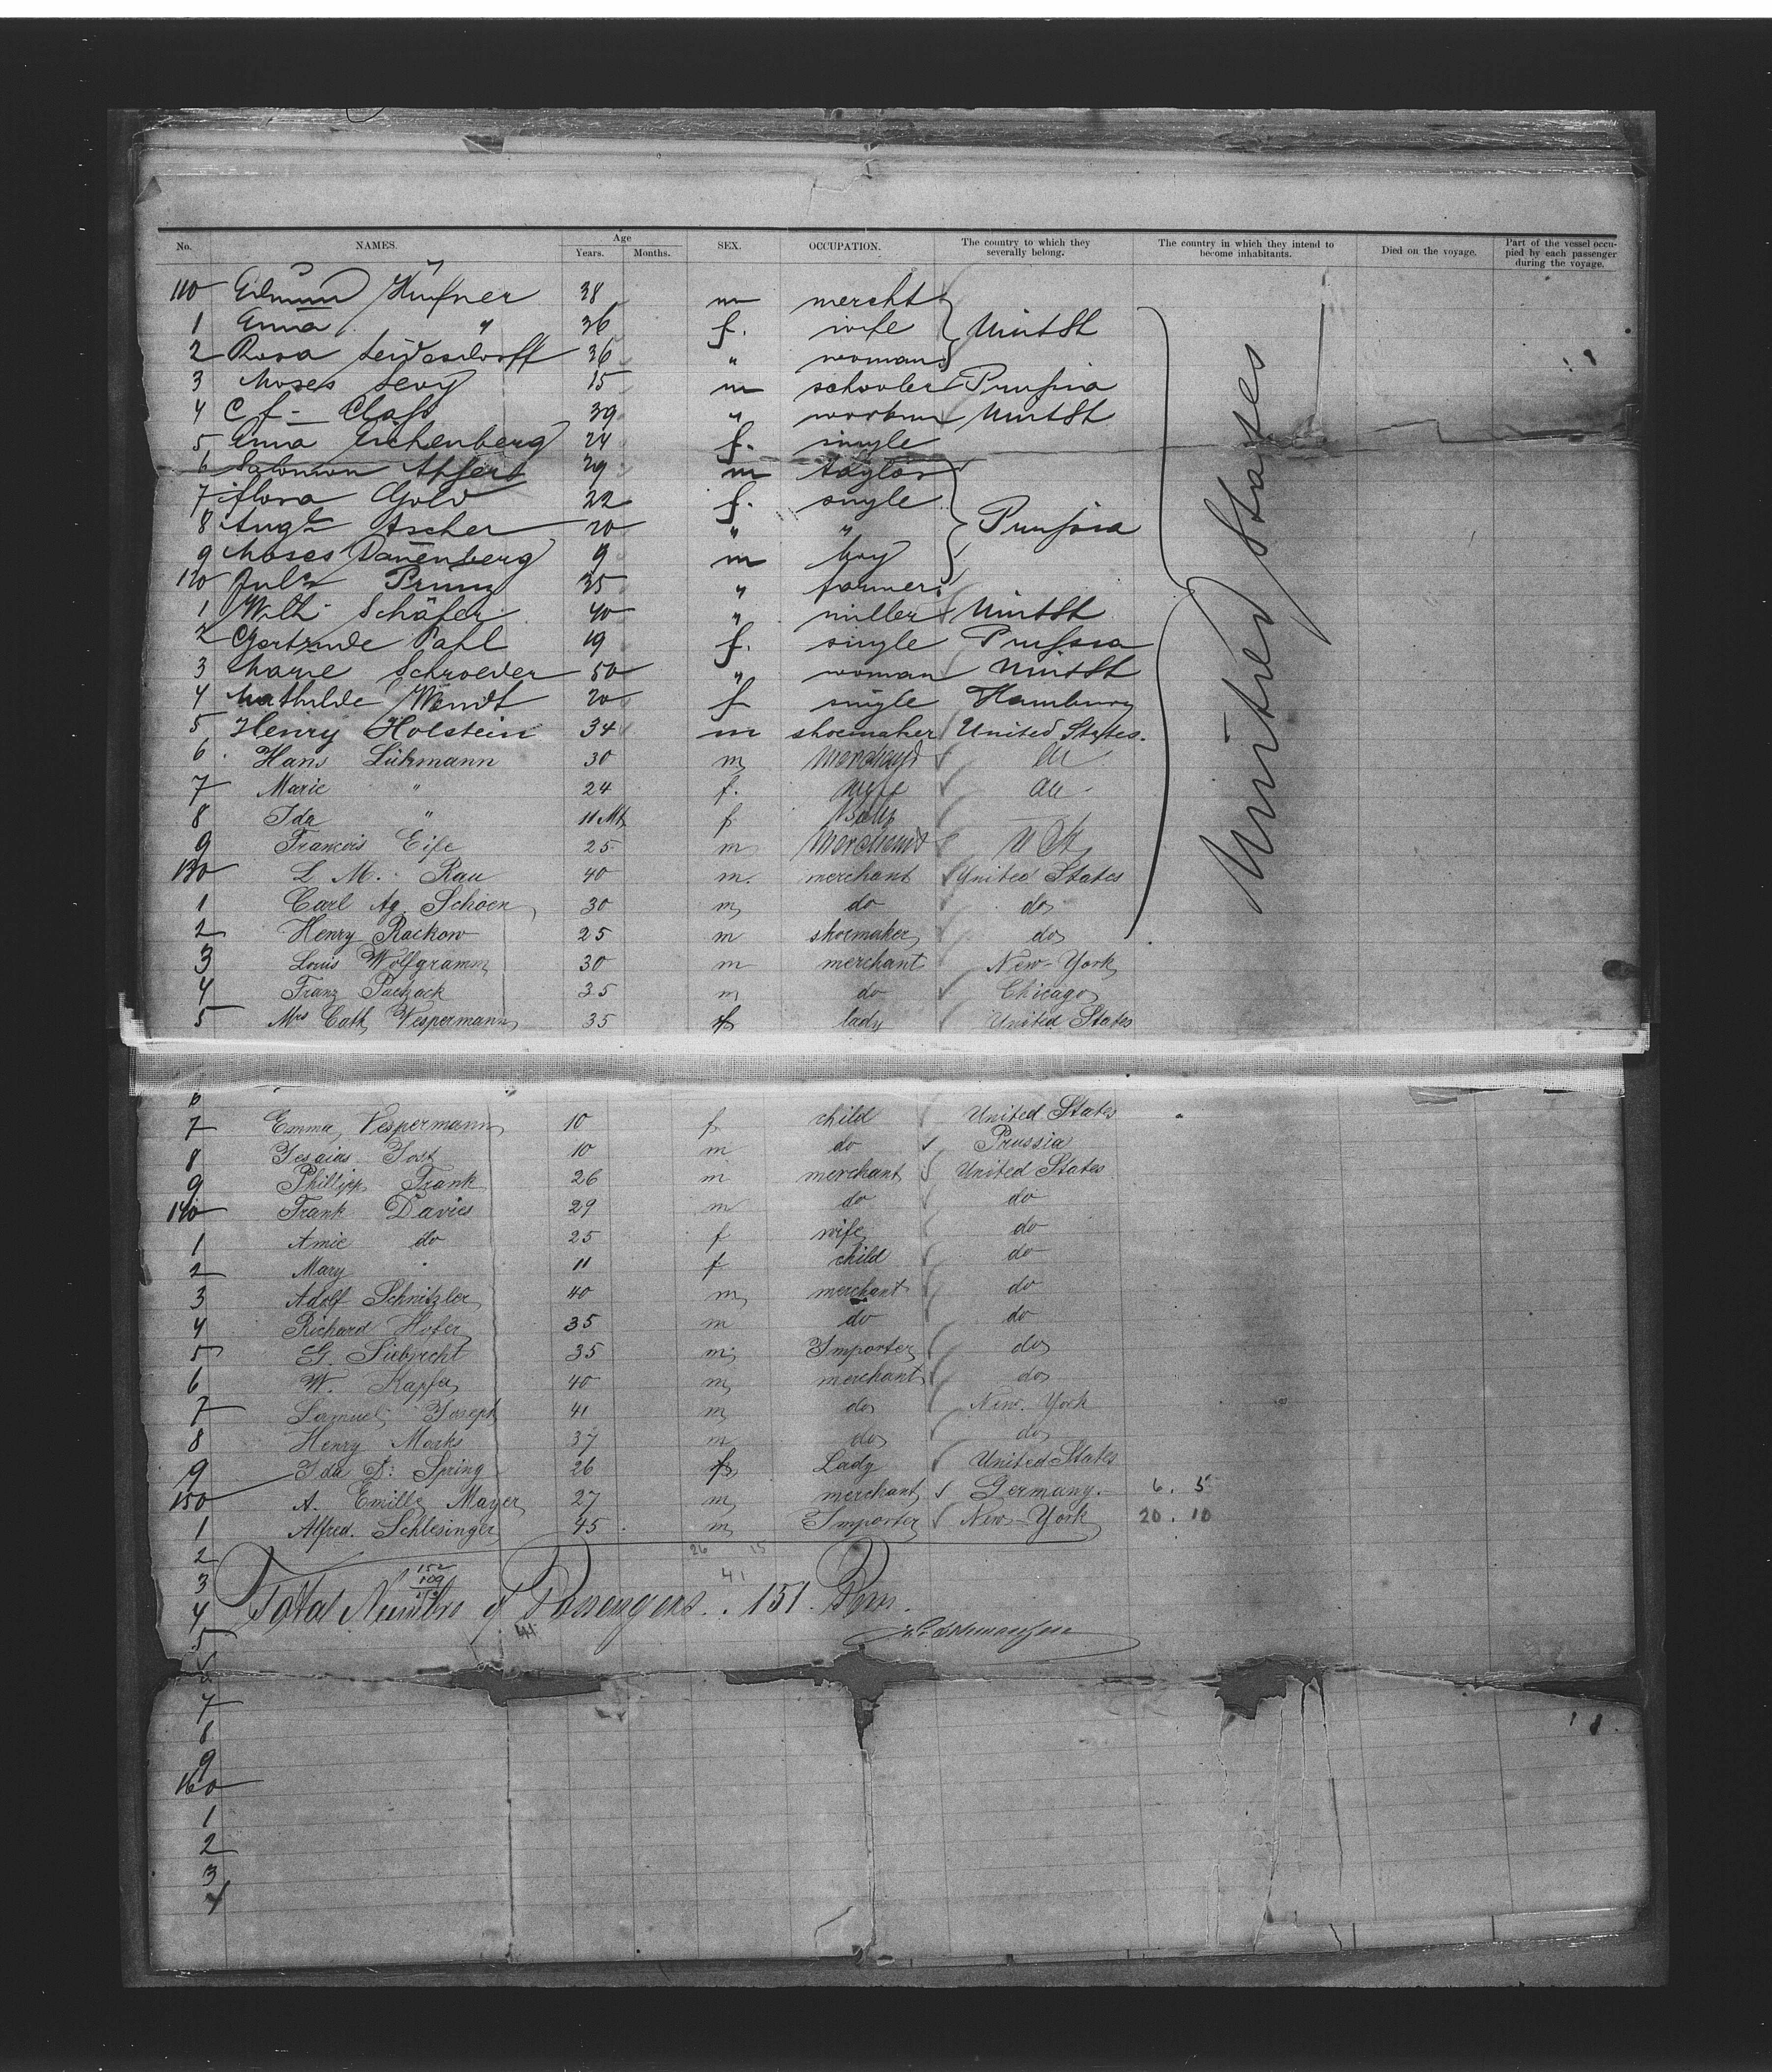 No. NAMES. Age Years. Months. SEX. OCCUPATION. The country to which they severally belong. The country in which they intend to become inhabitants. Died on the voyage. Part of the vessel occupied by each passenger during the voyage.
110 38 m mercht
1 Anna " 36 f. wife UnitSt
2 Rosa Seidesdorff 36 " woman
3 Moses Levy 15 m schooler Prussia
4 C f - Class 39 " workm UnitSt
5 Anna Eichenberg 24 f. single
6 Salomon 29 m taylor
7 Flora Gold 22 f. single
8 Augte Ascher 20 " " Prussia
9 Moses Danenberg 9 m boy
120 Juls 35 " farmer
1 Wilh Schäfer 40 " miller UnitSt
2 Gertrude Pahl 19 f. single Prussia
3 Marie Schroeder 50 " woman UnitSt
4 Mathilde Wendt 20 f single Hamburg
5 Henry Holstein 34 m shoemaker United States.
6 Hans Lührmann 30 m Merchand
7 Marie " 24 f. wife
8 Ida " 11 Mt f Baby
9 Francois Eife 25 m Merchand U St
130 L. M. Rau 40 m. merchant United States
1 Carl Ag. Schoen 30 m do do
2 Henry Rackow 25 m shoemaker do
3 Louis Wolfgramm 30 m merchant New-York
4 Franz 35 m do Chicago
5 Mrs Cath. Vespermann 35 f lady United States
United States
6
7 Emma Vespermann 10 f child United States
8 Jesaias Jost 10 m do Prussia
9 Phillipp Frank 26 m merchant United States
140 Frank Davies 29 m do do
1 Amie do 25 f wife do
2 Mary " 11 f child do
3 Adolf Schnitzler 40 m merchant do
4 Richard Hofer 35 m do do
5 G. Siebrecht 35 m Importer do
6 W. Kapfer 40 m merchant do
7 Samuel Joseph 41 m do New-York
8 Henry Marks 37 m do do
9 Ida D. Spring 26 f Lady United States
150 A. Emille Mayer 27 m merchant Germany. 6. 5
1 Alfred. Schlesinger 45 m Importer New-York 20. 10
2 26 15
3 152 109 41
4 Total Number of Passengers.. 151 Pers.
5 41
6
7
8
9
160
1
2
3
4